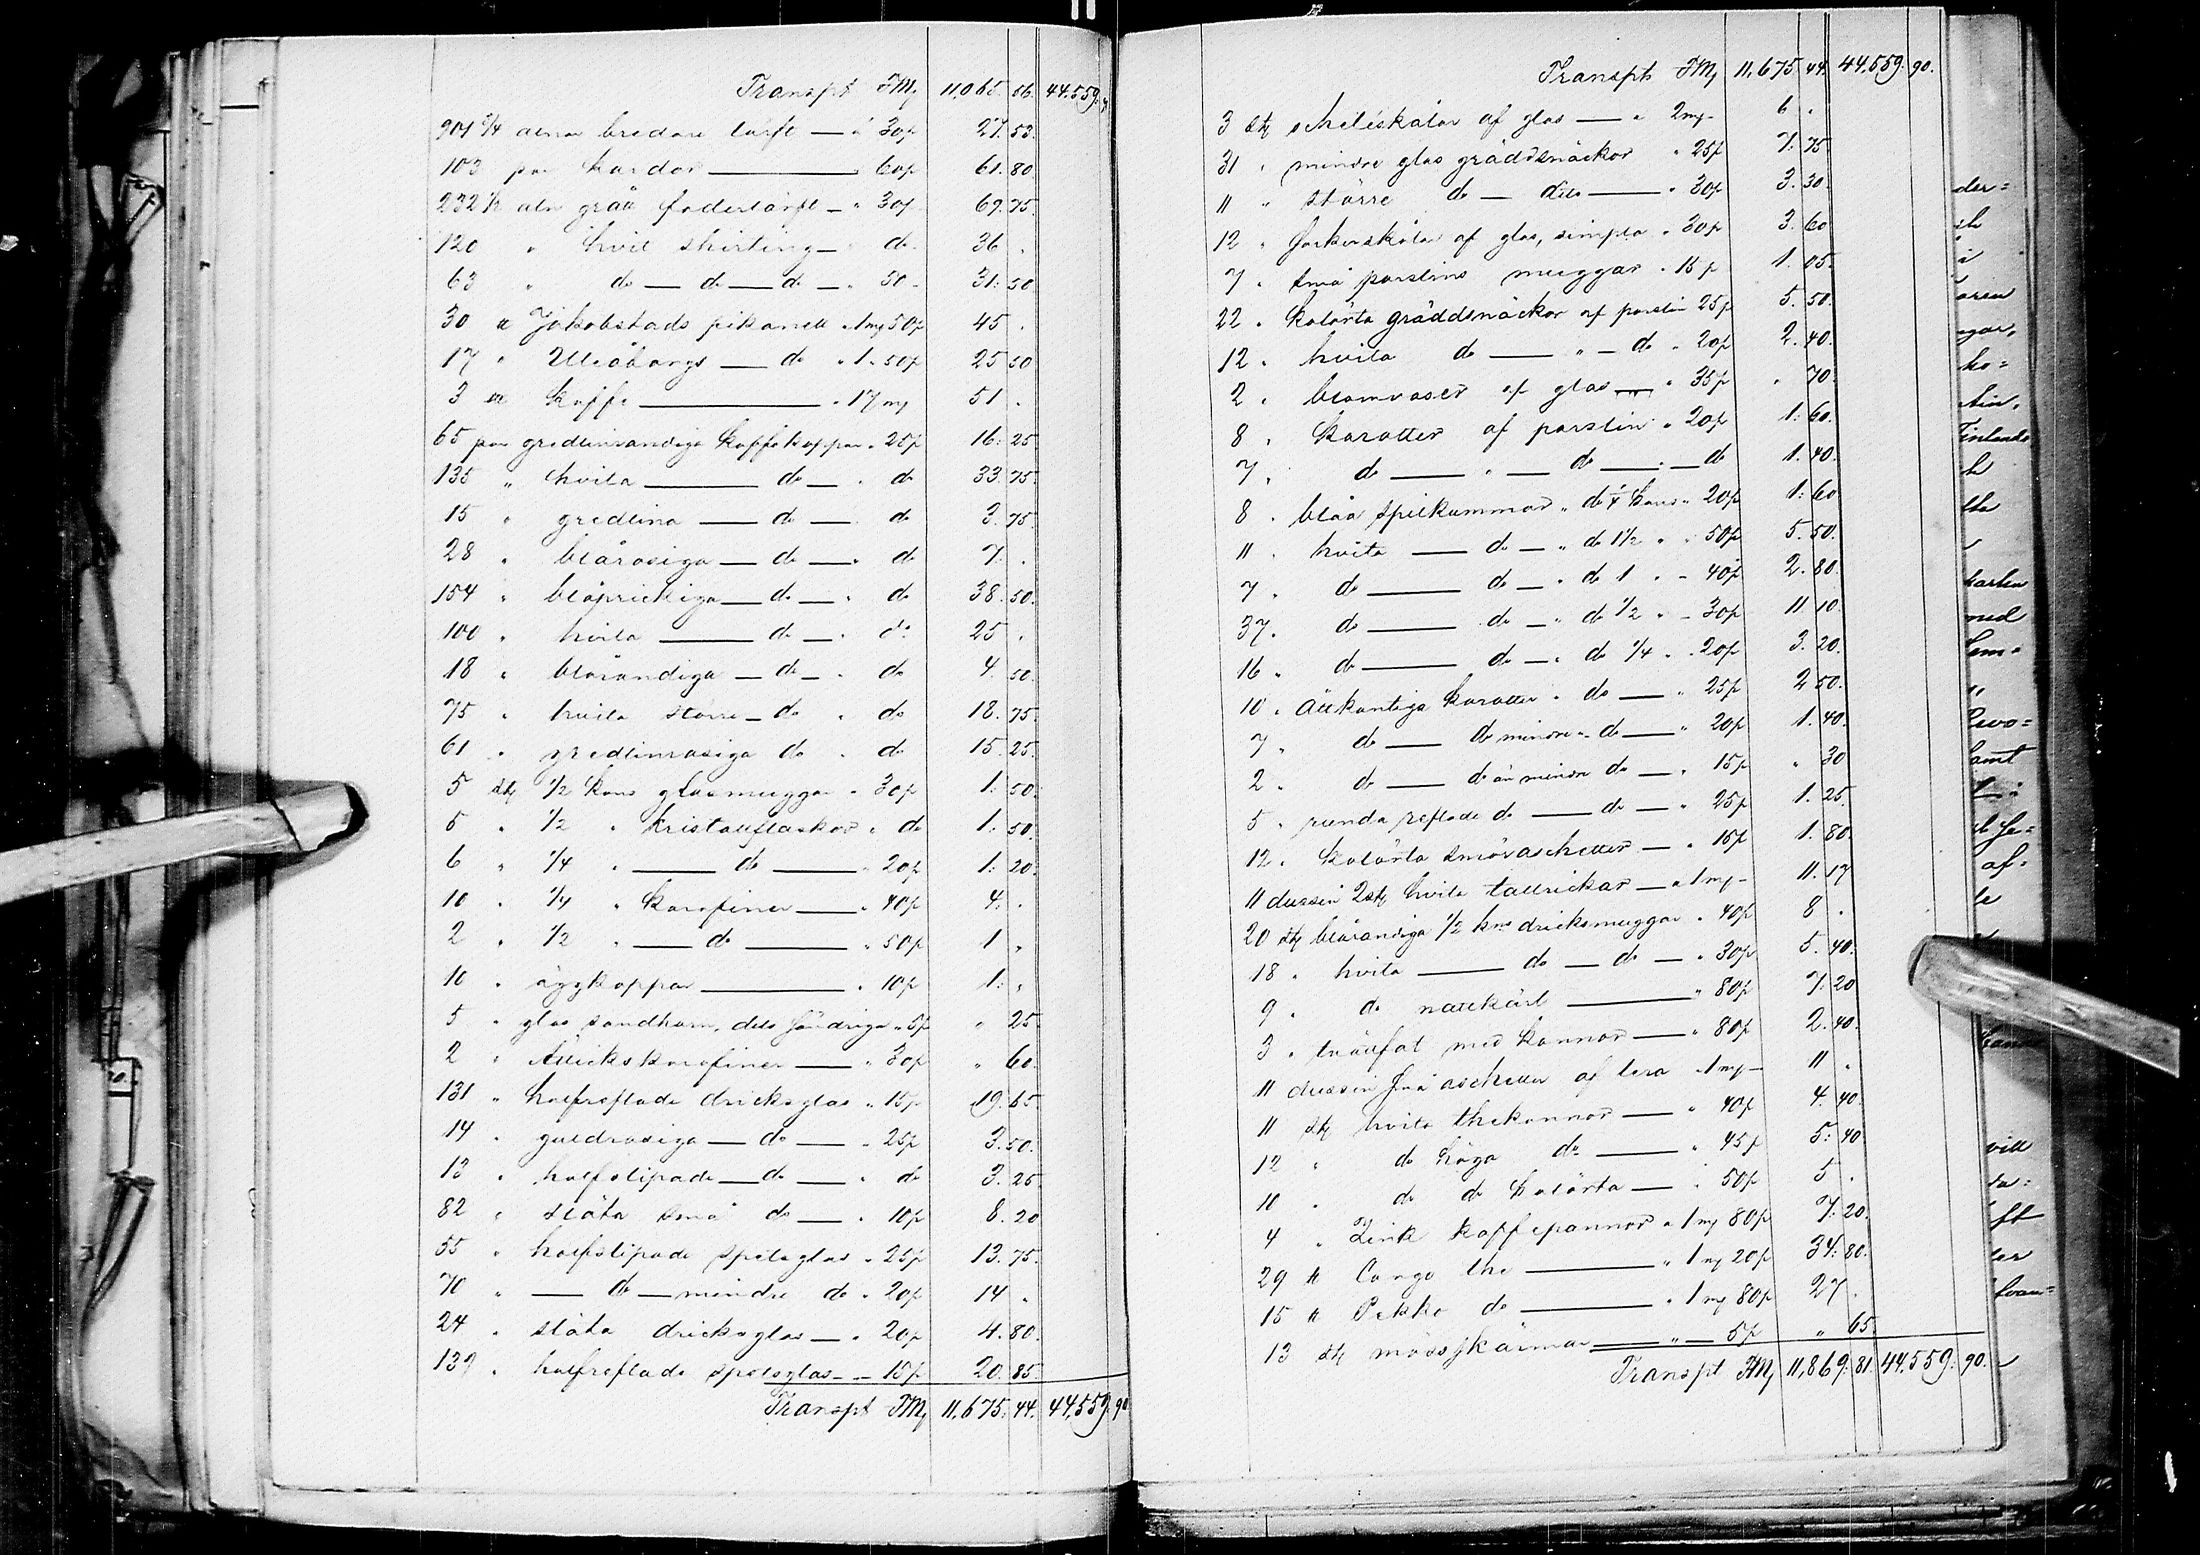 Transpt FMg 11,065. 06. 44.559.
901 3/4 alnar bredare lärft — à 30p 27. 53.
103 par kardor — " 60p 61. 80
232 1/2 aln gråa foderlärft — " 30p 69. 75.
120 " hvit shirting — do 36 .
63 " do — do — do — " 50 - 31: 50
30 Jakobstads pikanell " 1mg 50p 45 .
17 " Uleåborgs — do " 1 " 50p 25 50
3 kaffe — " 17 mg 51 .
65 par gredlinrandiga kaffekoppar " 25p 16: 25
135 " hvita — do — " do 33. 75.
15 " gredlina — do — do 3. 75.
28 " blårosiga — do — " do 7. .
154 " blåprickiga — do — " do 38. 50.
100 " hvita — do — " do 25 .
18 " blårandiga — do — " do 4. 50.
75 " hvita större — do " do 18. 75.
61 " gredlinrosiga do " do 15. 25.
5 stk 1/2 kans glasmuggar " 30p 1: 50.
5 " 1/2 " kristallflaskor " do 1: 50.
6 " 1/4 " — do — " 20p 1: 20.
10 " 1/4 " karafiner — " 40p 4. .
2 " 1/2 " — do — " 50p 1 "
10 " äggkoppar — " 10p 1: "
5 " glas sandhorn, dels färdriga " 5p " 25.
2 " karafiner — " 30p " 60.
131 " halfreflade dricksglas " 15p 19. 65.
14 " guldrosiga — do — " 25p 3. 50.
13 " halfslipade — do — " do 3. 25.
82 " släta små do — " 10p 8. 20
55 " halfslipade spetsglas " 25p 13. 75.
70 " — do — mindre do " 20p 14 .
24 " släta dricksglas — " 20p 4. 80.
139 " halfreflade spetsglas — 15p 20. 85.
Transpt FMg 11,675. 44. 44,559. 90
Transpt FMg 11,675 44. 44,559. 90.
3 stk geléskålar af glas — " 2mg - 6 .
31 " mindre glas gräddsnäckor " 25p 7. 75
11 " större do — dito — " 30p 3. 30
12 " sockerskålar af glas, simpla " 30p 3. 60
7 " små porslins muggar " 15p 1. 05.
22 " kolörta gräddsnäckor af porslin 25p 5. 50.
12 " hvita do — " — do " 20p 2. 40.
2 " blomvaser af glas — " 35p " 70.
8 " karotter af porslin " 20p 1: 60.
7 " do — " — do — " — do 1. 40.
8 " blåa spilkummar " do 1/4 kans " 20p 1: 60
11 " hvita — do — " do 1 1/2 " " 50p 5. 50.
7 " do — do — " do 1 " - 40p 2. 80.
37 " do — do — " do 1/2 " - 30p 11 10.
16 " do — do — " do 1/4 " " 20p 3. 20.
10 " åttkantiga karotter " do — " 25p 2 50.
7 " do — do mindre " do — " 20p 1. 40.
2 " do — do än mindre do — " 15p " 30
5 " runda reflade do — do — " 25p 1. 25.
12 " kolörta smörassietter — " 15p 1. 80.
11 dussin 2 stk hvita tallrickar — à 1mg - 11. 17
20 stk blårandiga 1/2 kns dricksmuggar " 40p 8 .
18 " hvita — do — do — " 30p 5. 40.
9 " do nattkärl — " 80p 7. 20
3 " tvättfat med kannor — " 80p 2. 40.
11 dussin små aschetter af lera " 1mg - 11 .
11 stk hvita thekannor — " 40p 4. 40.
12 " do höga do — " 45p 5: 40
10 " do do kolörta — " 50p 5 .
4 " Zink kaffepannor " 1 mg 80p 7: 20.
29 Congo the — " 1 mg 20p 34: 80.
15 Pekko do — " 1 mg 80p 27 .
13 stk mösskärmar — " — 5p " 65.
Transpt FMg 11,869. 81 44,559. 90.